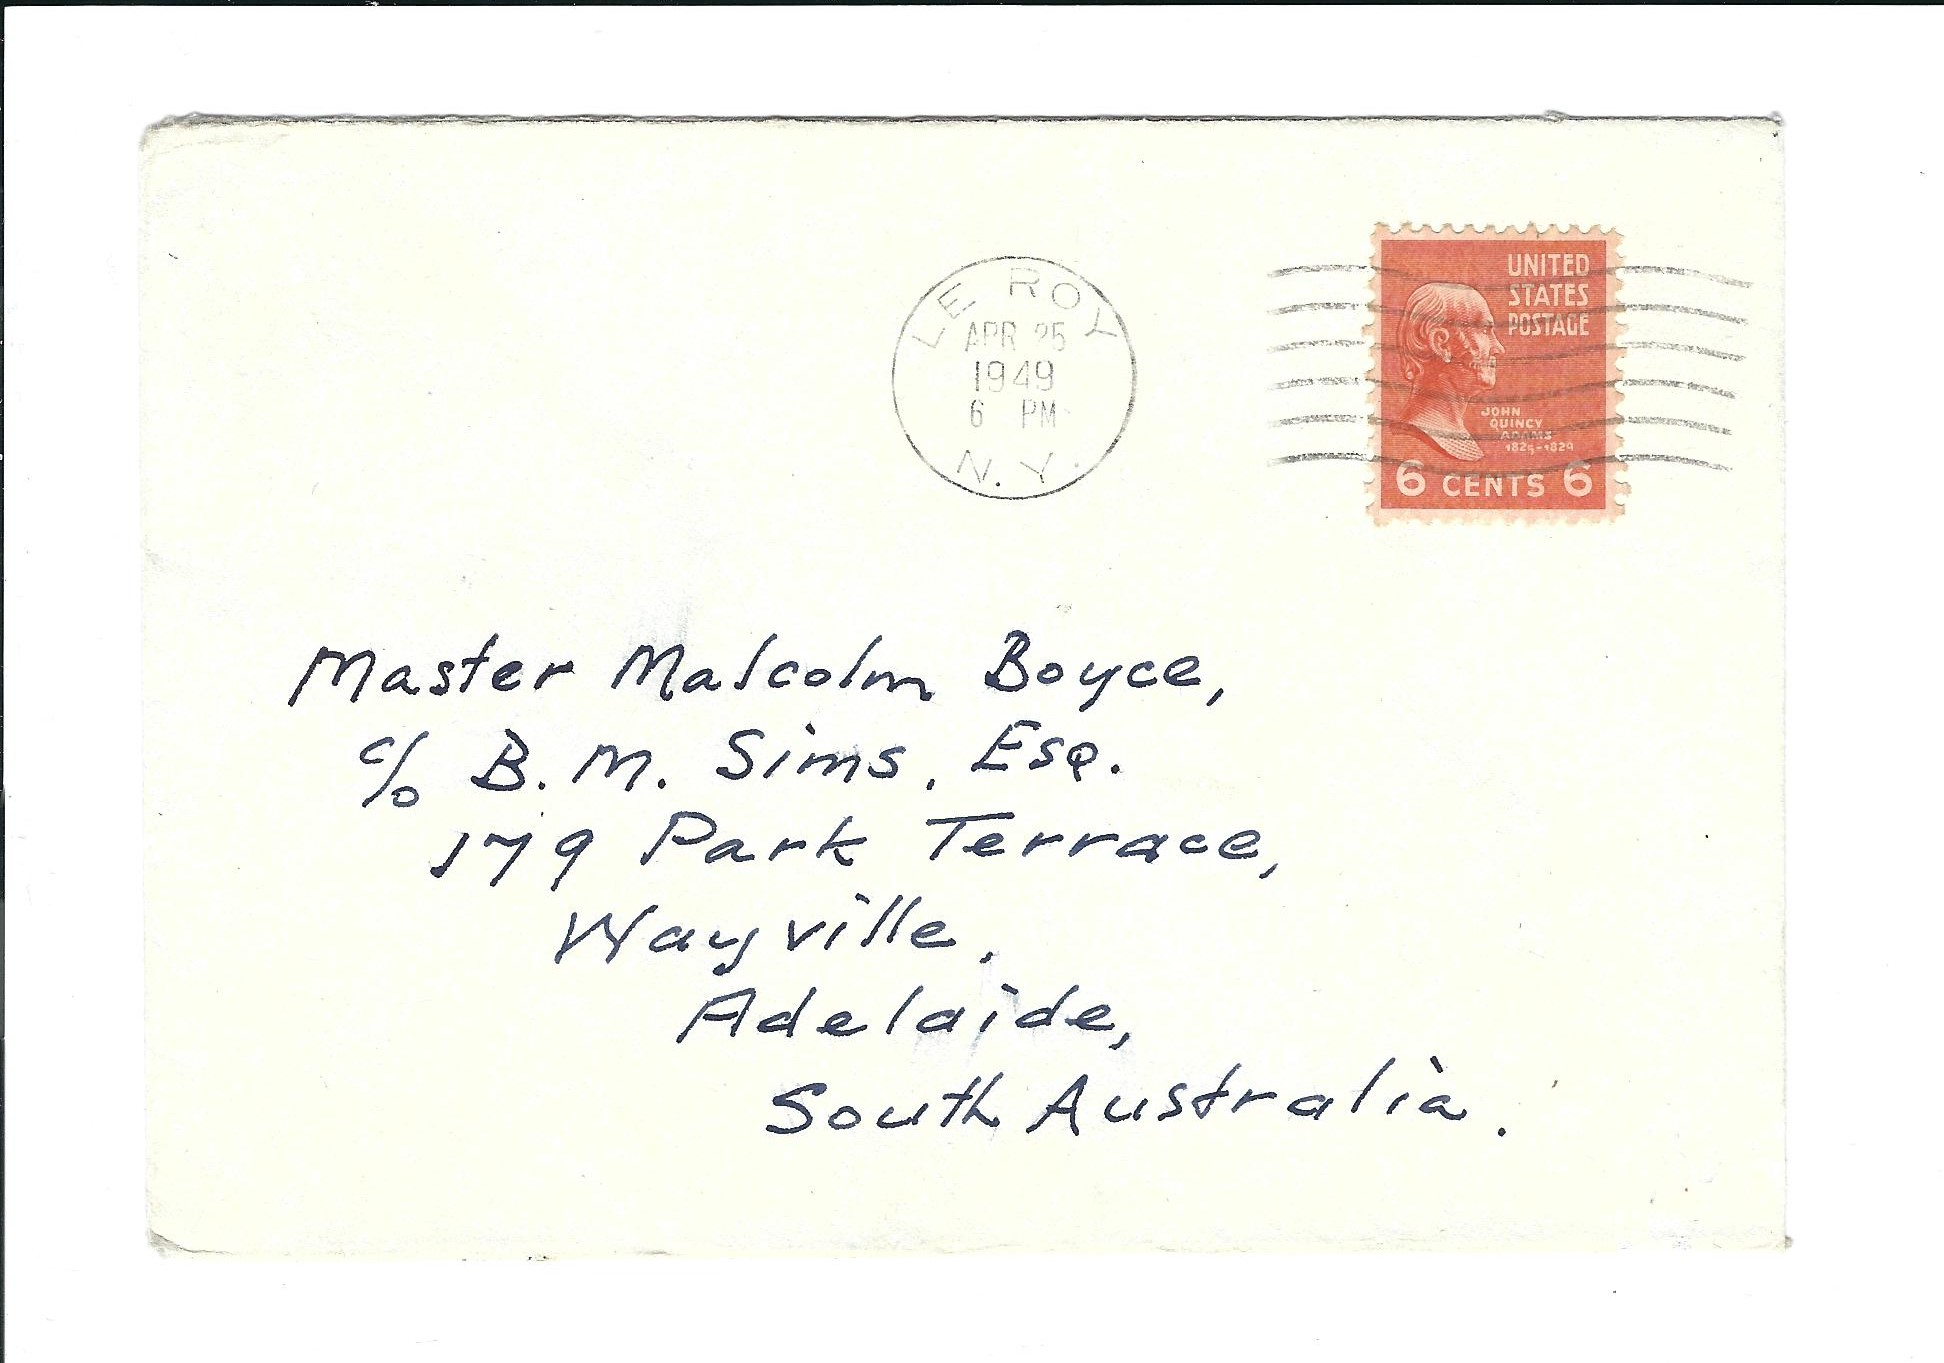 LE ROY
APR 25
1949
6 PM
N.Y.
UNITED
STATES
POSTAGE
JOHN
QUINCY
ADAMS
1825-1829
6 CENTS 6
Master Malcolm Boyce,
c/o B. M. Sims, Esq.
179 Park Terrace,
Wayville,
Adelaide,
South Australia.